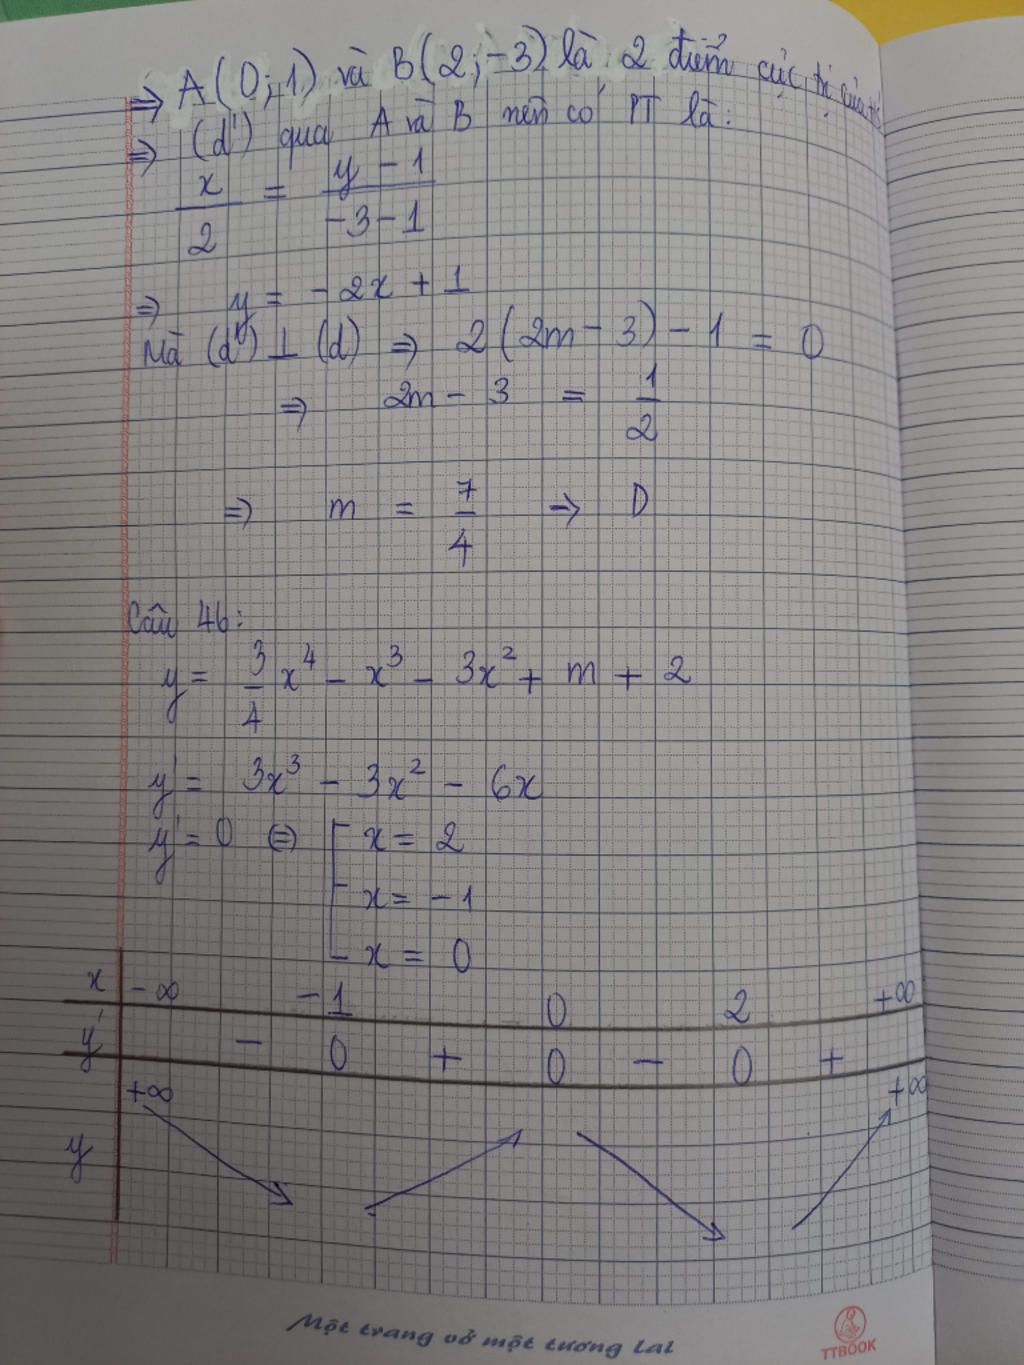 ⇒ A(0;1) và B(2;-3) là 2 điểm cực trị của
⇒ (d') qua A và B nên có PT là:
x/2 = (y - 1)/(-3 - 1)
⇒ y = -2x + 1
Mà (d') ⊥ (d) ⇒ 2(2m - 3) - 1 = 0
⇒ 2m - 3 = 1/2
⇒ m = 7/4 → D
Câu 46:
y = 3/4 x⁴ - x³ - 3x² + m + 2
y' = 3x³ - 3x² - 6x
y' = 0 ⇔ [ x = 2
x = -1
x = 0
x -∞ -1 0 2 +∞
y' - 0 + 0 - 0 +
+∞ +∞
y
Một trang vở một tương lai
TTBOOK